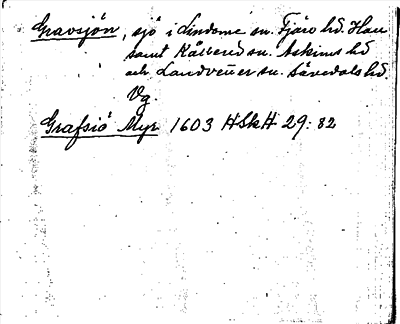 Gravsjön, sjö i Lindome sn. Fjäre hd. Hall
samt Kållered sn. Askims hd
och Landvetter sn. Sävedals hd.
Vg.
Grafsiö Myr 1603 HSkH 29: 82